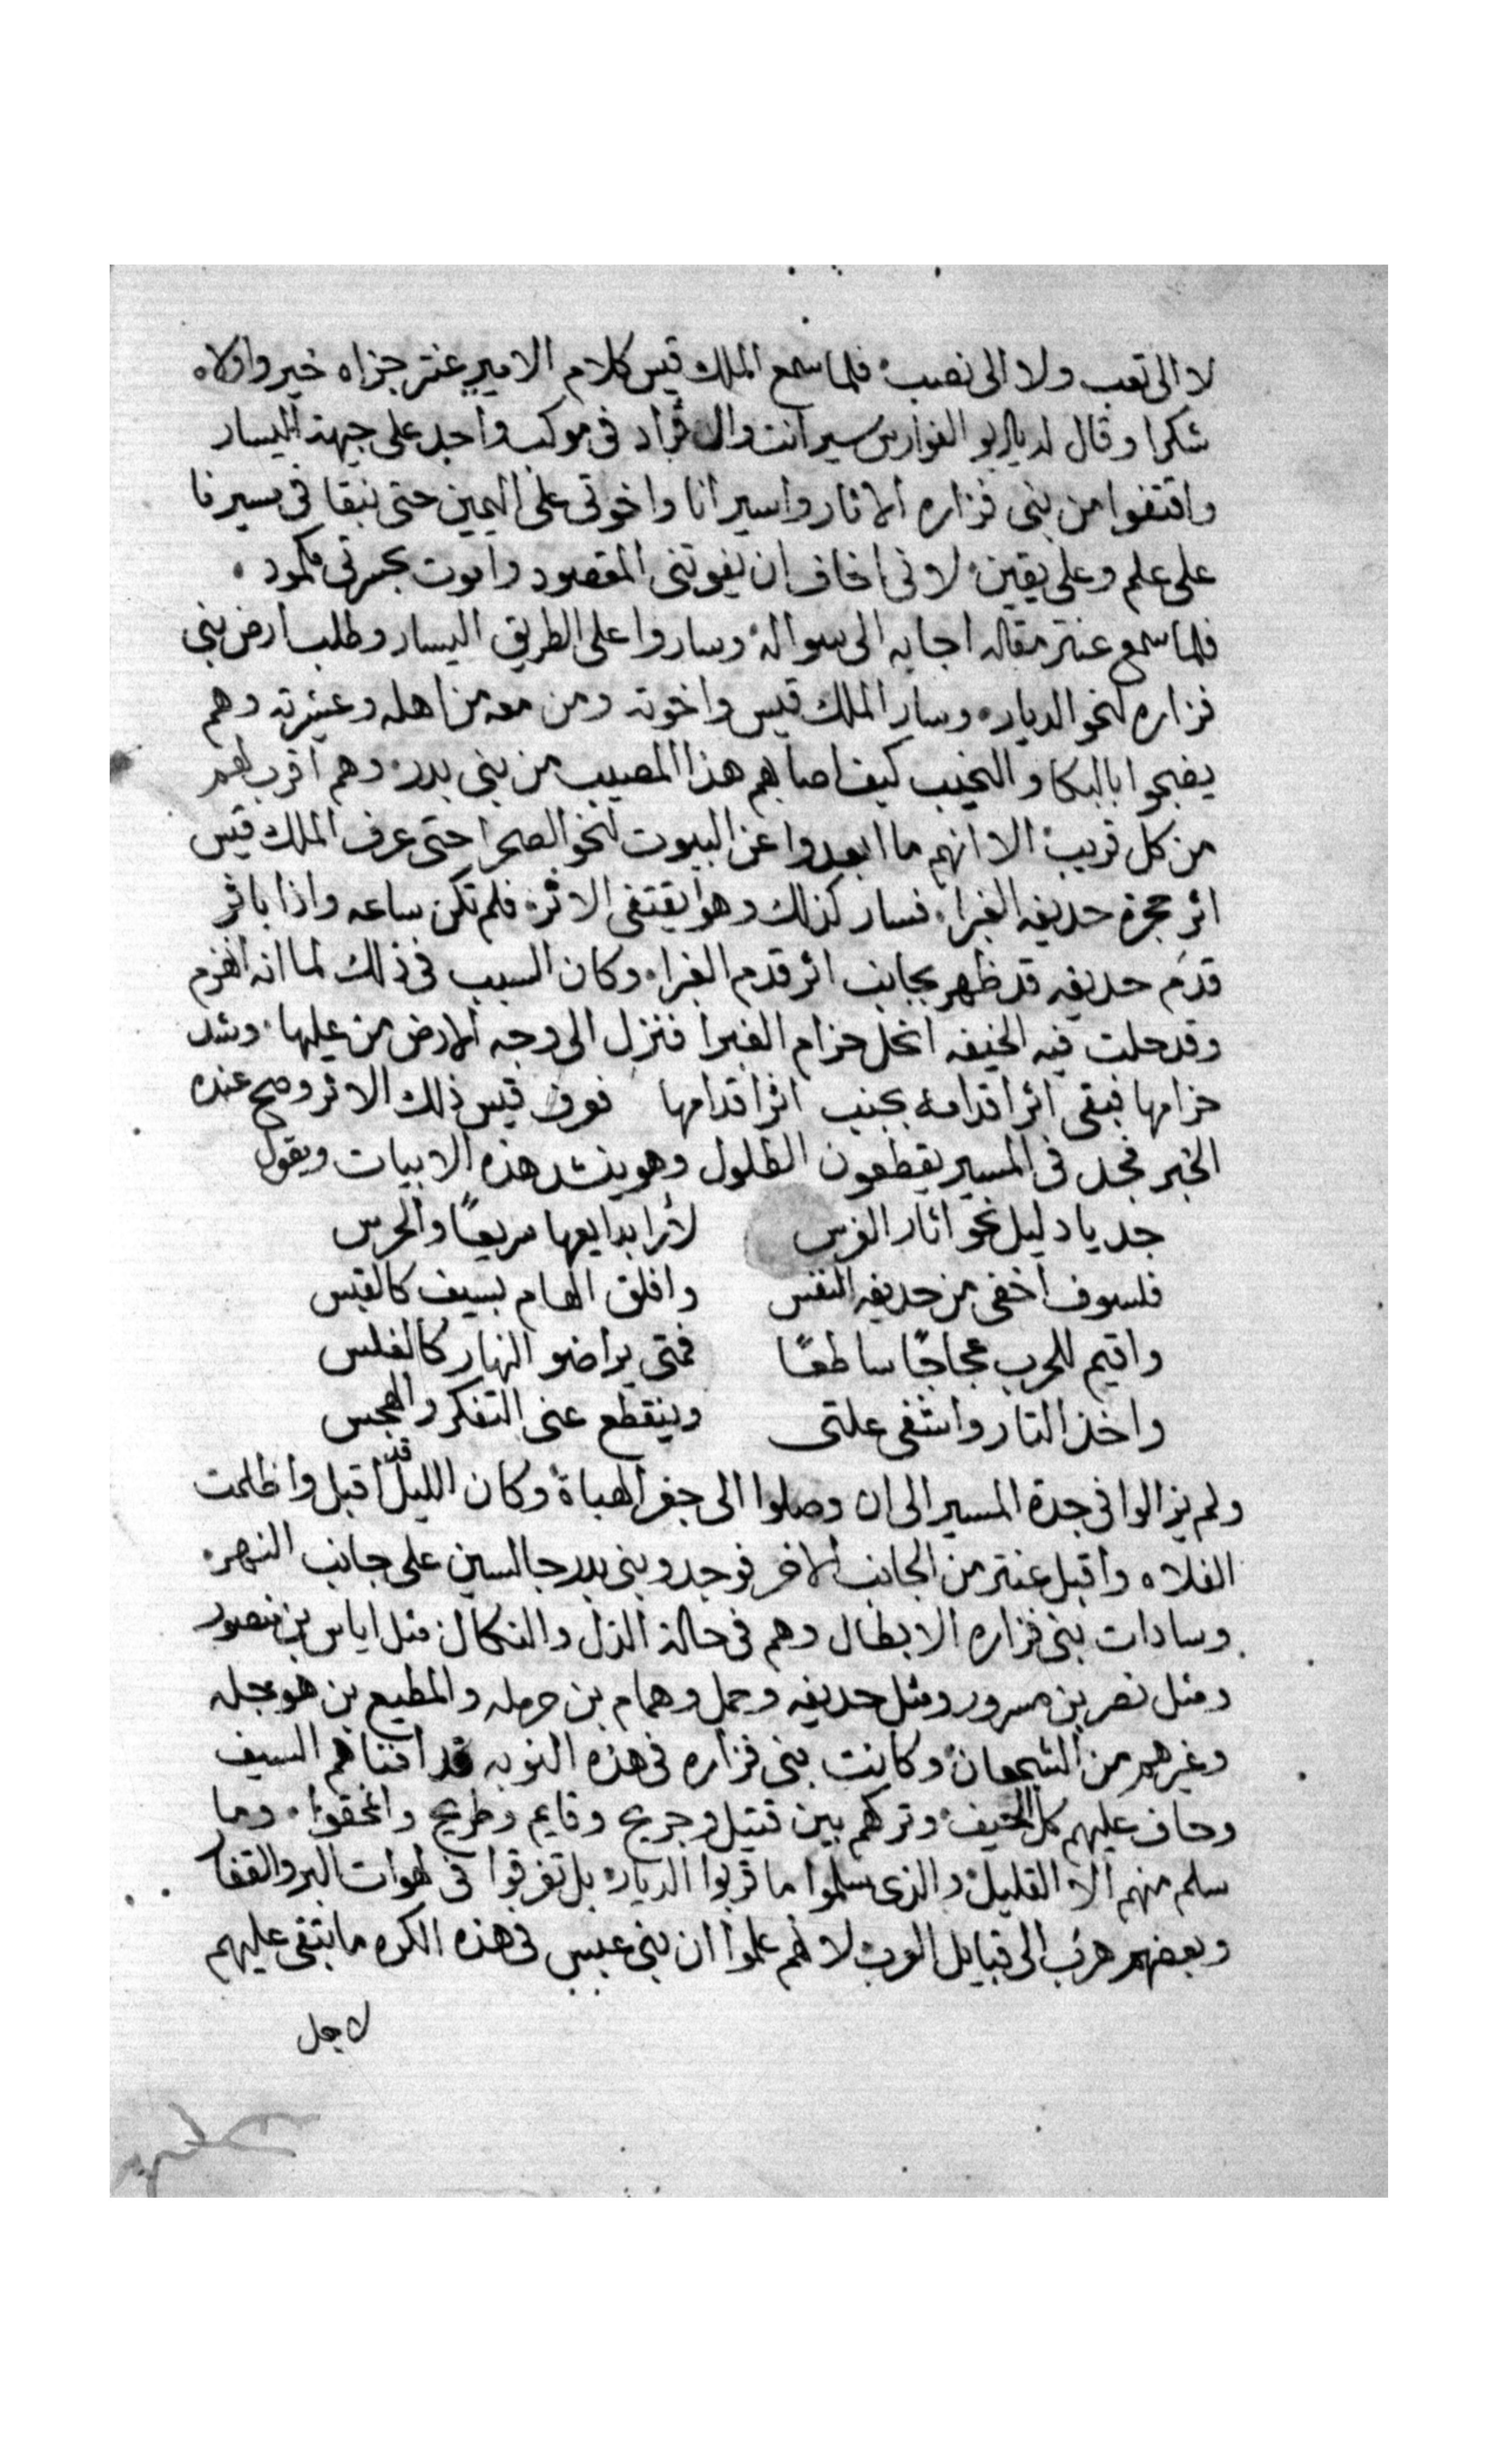 لا الى تعب ولا الى نصب فلما سمع الملك قيس كلام الامير عنتر جزاه خير واولاه
شكرا وقال له يابو الفوارس سير انت وال قراد فى موكب واحد على جهة اليسار
واقتفوا من بنى فزاره الاثار واسير انا واخوتى على اليمين حتى نبقا فى سيرنا
على علم وعلى يقين لانى اخاف ان يفوتنى المقصود واموت بحسرتى مكمود
فلما سمع عنتر مقاله اجابه الى سواله وساروا على الطريق اليسار وطلب ارض بنى
فزاره نحو الديار وسار الملك قيس واخوته ومن معه من اهله وعشيرته وهم
يضجوا بالبكا والنحيب كيف اصابهم هذا المصيب من بنى بدر وهم اقرب لهم
من كل قريب الا انهم ما ابعدوا عن البيوت نحو الصحرا حتى عرف الملك قيس
اثر حجرة حديفه الغبرا فسار كذلك وهو يقتفى الاثر فلم تكن ساعه واذا باثر
قدم حديفه قد ظهر بجانب اثر قدم الغبرا وكان السبب فى ذلك لما انه انهزم
وقد حلت فيه الخيفه انحل حزام الغبرا فنزل الى وجه الارض من عليها وشد
حزامها فبقى اثر اقدامه بجنب اثر اقدامها فعرف قيس ذلك الاثر وصح عنده
الخبر فجد فى المسير يقطعون الطلول وهو ينشد هذه الابيات ويقول
جد يا دليل نحو اثار الفرس لأرا بدايعها سريعًا والحرس
فلسوف اخفى من حديفه النفس وافلق الهام بسيف كالقبس
واقيم للحرب عجاجًا ساطعًا فمتى يرا ضو النهار كالغلس
واخذ التار واشفى علتى وينقطع عنى التفكر والهجس
ولم يزالوا فى جدة المسير الى ان وصلوا الى جفر الهباة وكان الليل قد اقبل واظلمت
الفلاه واقبل عنتر من الجانب الاخر فوجدو بنى بدر جالسين على جانب النهر
وسادات بنى فزاره الابطال وهم فى حالة الذل والنكال مثل اياس بن منصور
ومثل نصر بن مسرور ومثل حديفه وحمل وهمام بن حرمله والمطيع بن هوجله
وغيرهم من الشجعان وكانت بنى فزاره فى هذه النوبه قد افناهم السيف
وحاف عليهم كل الحيف وتركهم بين قتيل وجريح وقايم وطريح وانمحقوا وما
سلم منهم الا القليل والذى سلموا ما قربوا الديار بل تفرقوا فى لهوات البر والقفار
وبعضهم هرب الى قبايل العرب لانهم علموا ان بنى عبس فى هذه الكره ما تبقى عليهم
لاجل